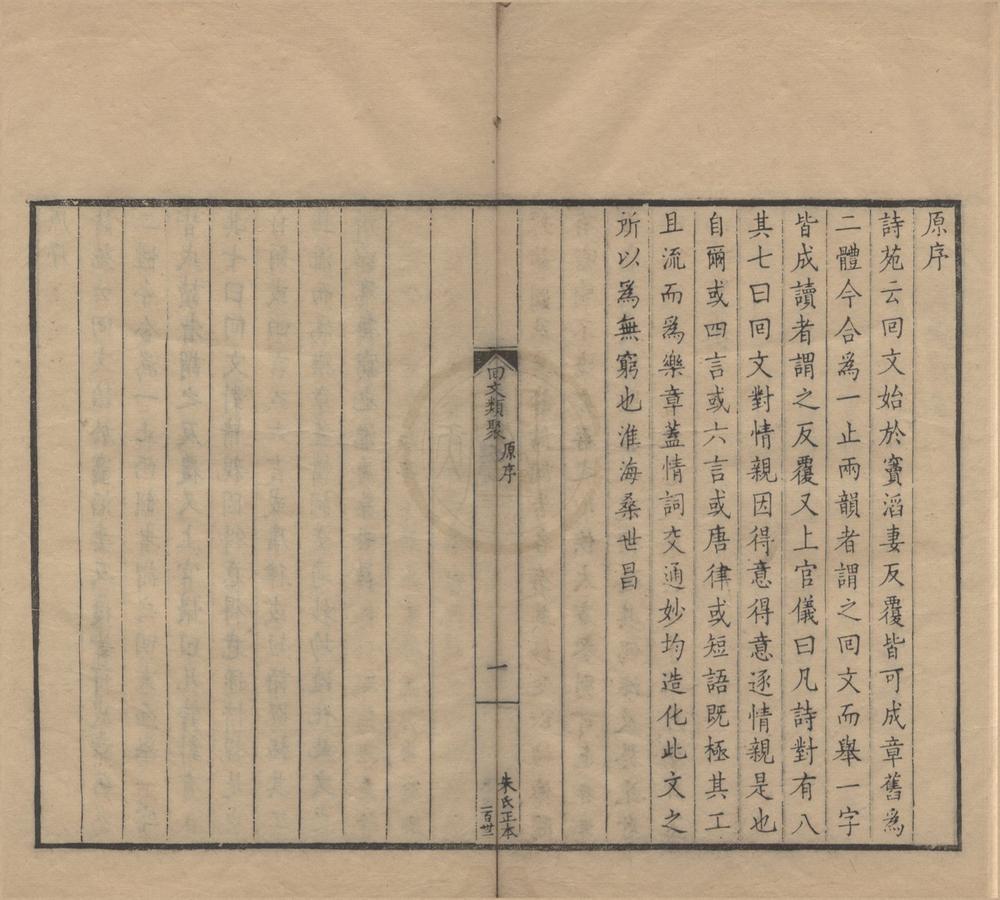 原序
詩苑云回文始於竇滔妻反覆皆可成章舊爲
二體今合爲一止兩韻者謂之回文而舉一字
皆成讀者謂之反覆又上官儀曰凡詩對有八
其七曰回文對情親因得意得意逐情親是也
自爾或四言或六言或唐律或短語既極其工
且流而爲樂章蓋情詞交通妙均造化此文之
所以爲無窮也淮海桑世昌
回文類聚
原序
一
朱氏正本
一百廿